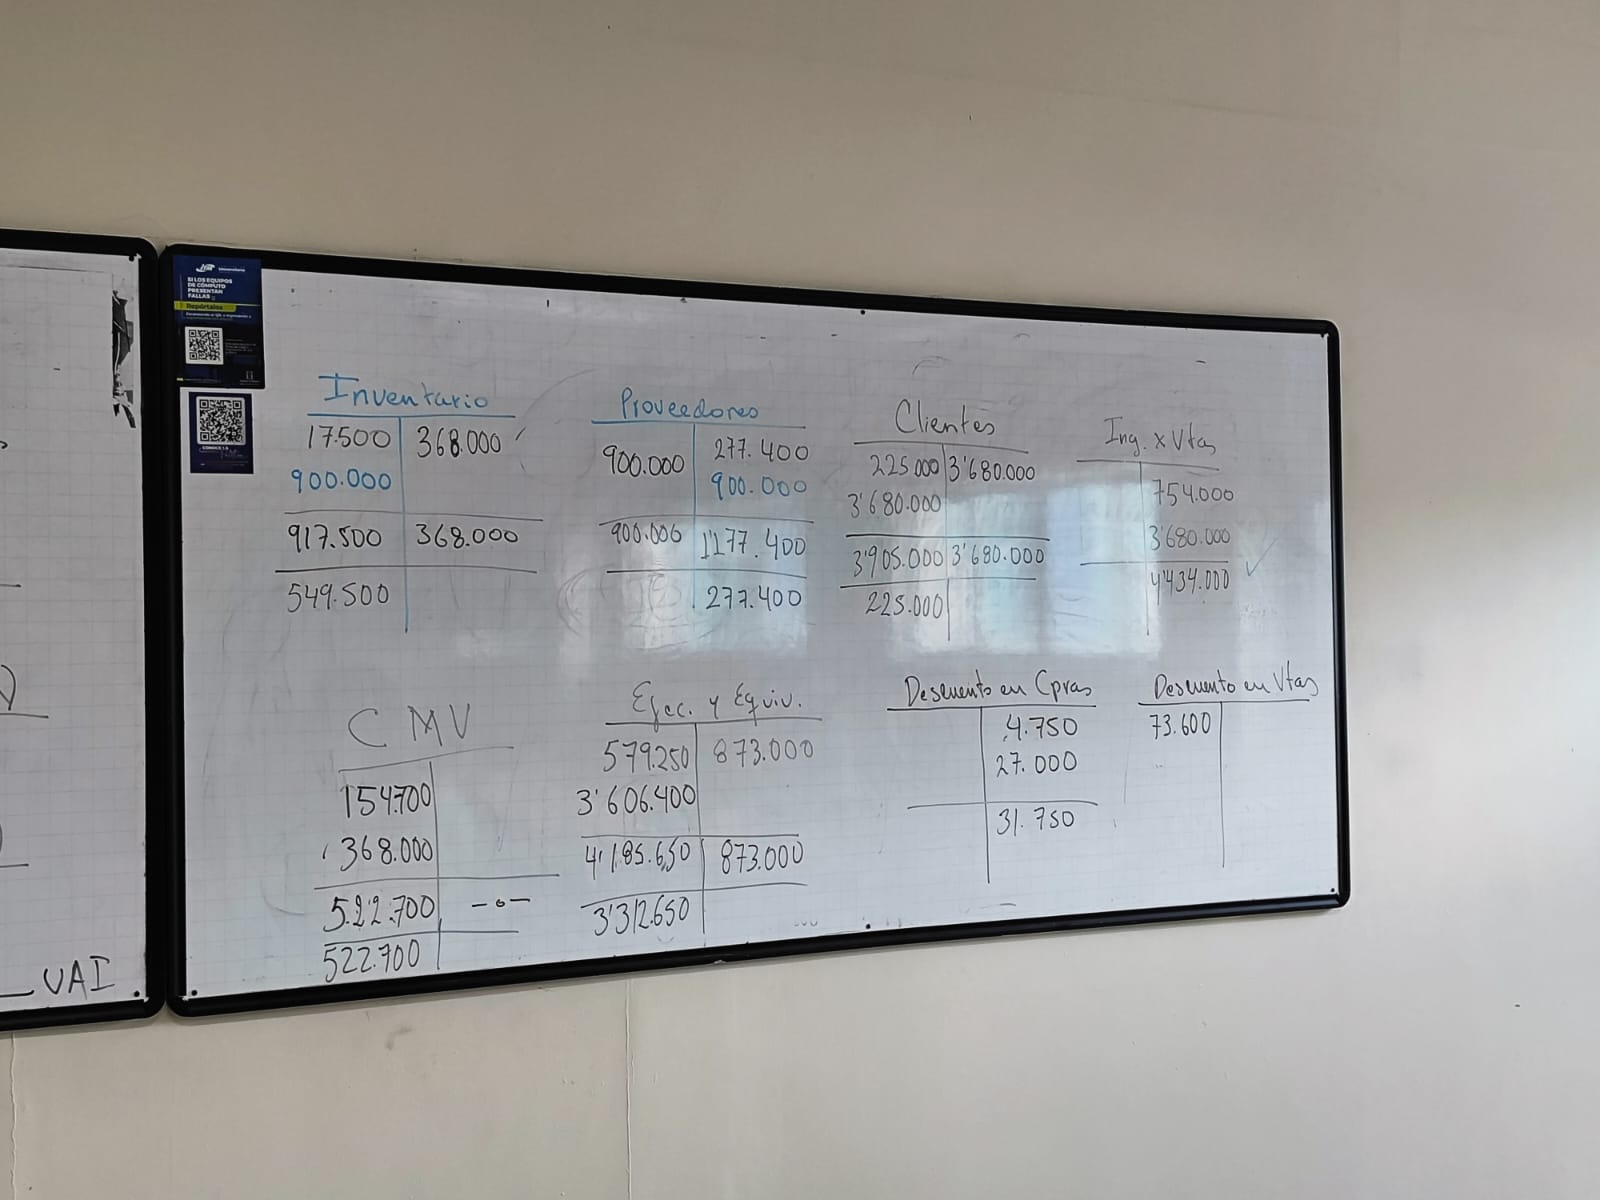 SI LOS EQUIPOS
DE CÓMPUTO
PRESENTAN
FALLAS
Repórtalos
Inventario
17.500 368.000
900.000
917.500 368.000
549.500
Proveedores
900.000 277.400
900.000
900.000 1'177.400
277.400
Clientes
225.000 3'680.000
3'680.000
3'905.000 3'680.000
225.000
Ing. x Vtas
754.000
3'680.000
4'434.000
CMV
154.700
368.000
522.700 -o-
522.700
Efec. y Equiv.
579.250 873.000
3'606.400
4'185.650 873.000
3'312.650
Descuento en Cpras
4.750
27.000
31.750
Descuento en Vtas
73.600
UAI